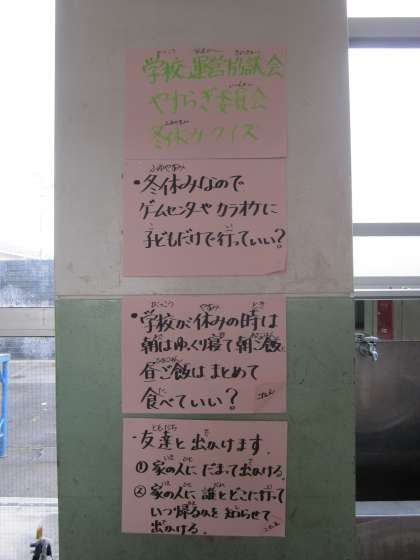 学校運営協議会
やすらぎ委員会
冬休みクイズ
・冬休みなので
ゲームセンタや カラオケに
子どもだけで行っていい?
・学校が休みの時は
朝はゆっくり寝て朝ご飯
昼ご飯は まとめて
食べていい?
・友達と出かけます。
① 家の人に だまって出かける。
② 家の人に 誰とどこに行って
いつ帰るかを 知らせて
出かける。